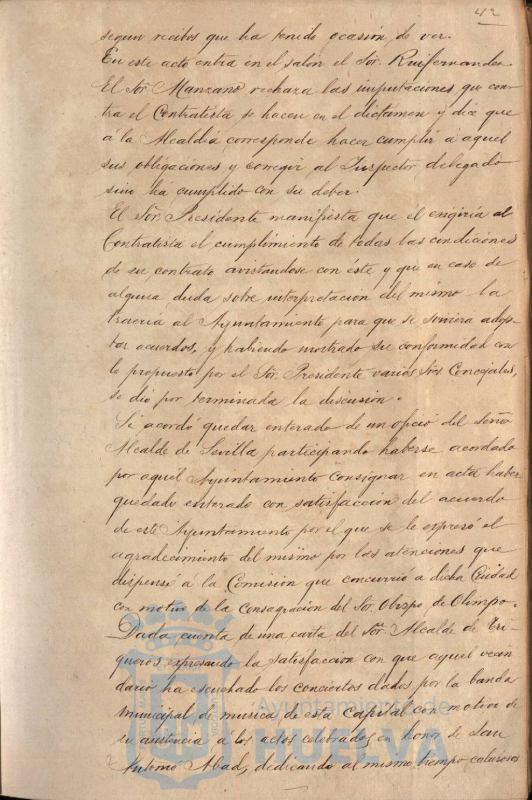 42
segun recibos que ha tenido ocasión de ver.
En este acto entra en el salon el Sor. Ruifernandez.
El Sor Manzano rechaza las imputaciones que con-
tra el Contratista se hacen en el dictamen y dice que
á la Alcaldia corresponde hacer cumplir á aquel
sus obligaciones y corregir al Inspector delegado
sino ha cumplido con su deber.
El Sor. Presidente manifiesta que el exigiria al
Contratista el cumplimiento de todas las condiciones
de su contrato avistandose con éste y que en caso de
alguna duda sobre interpretacion del mismo la
traeria al Ayuntamiento para que se sirviera adop-
tar acuerdos, y habiendo mostrado su conformidad con
lo propuesto por el Sor. Presidente varios Sres Concejales,
se dio por terminada la discusion.
Se acordó quedar enterado de un oficio del Señor
Alcalde de Sevilla participando haberse acordado
por aquel Ayuntamiento consignar en acta haber
quedado enterado con satisfaccion del acuerdo
de este Ayuntamiento por el que se le expresó el
agradecimiento del mismo por las atenciones que
dispensó á la Comision que concurrió a dicha Ciudad
con motivo de la Consagracion del Sor. Obispo de Olimpo.
Dada cuenta de una carta del Sor. Alcalde de Tri-
gueros expresando la satisfaccion con que aquel vecin
dario ha escuchado los conciertos dados por la banda
municipal de musica de esta Capital con motivo de
su asistencia á los actos celebrados en honor de San
Antonio Abad, dedicando al mismo tiempo calurosos
Ayuntamiento de
HUELVA